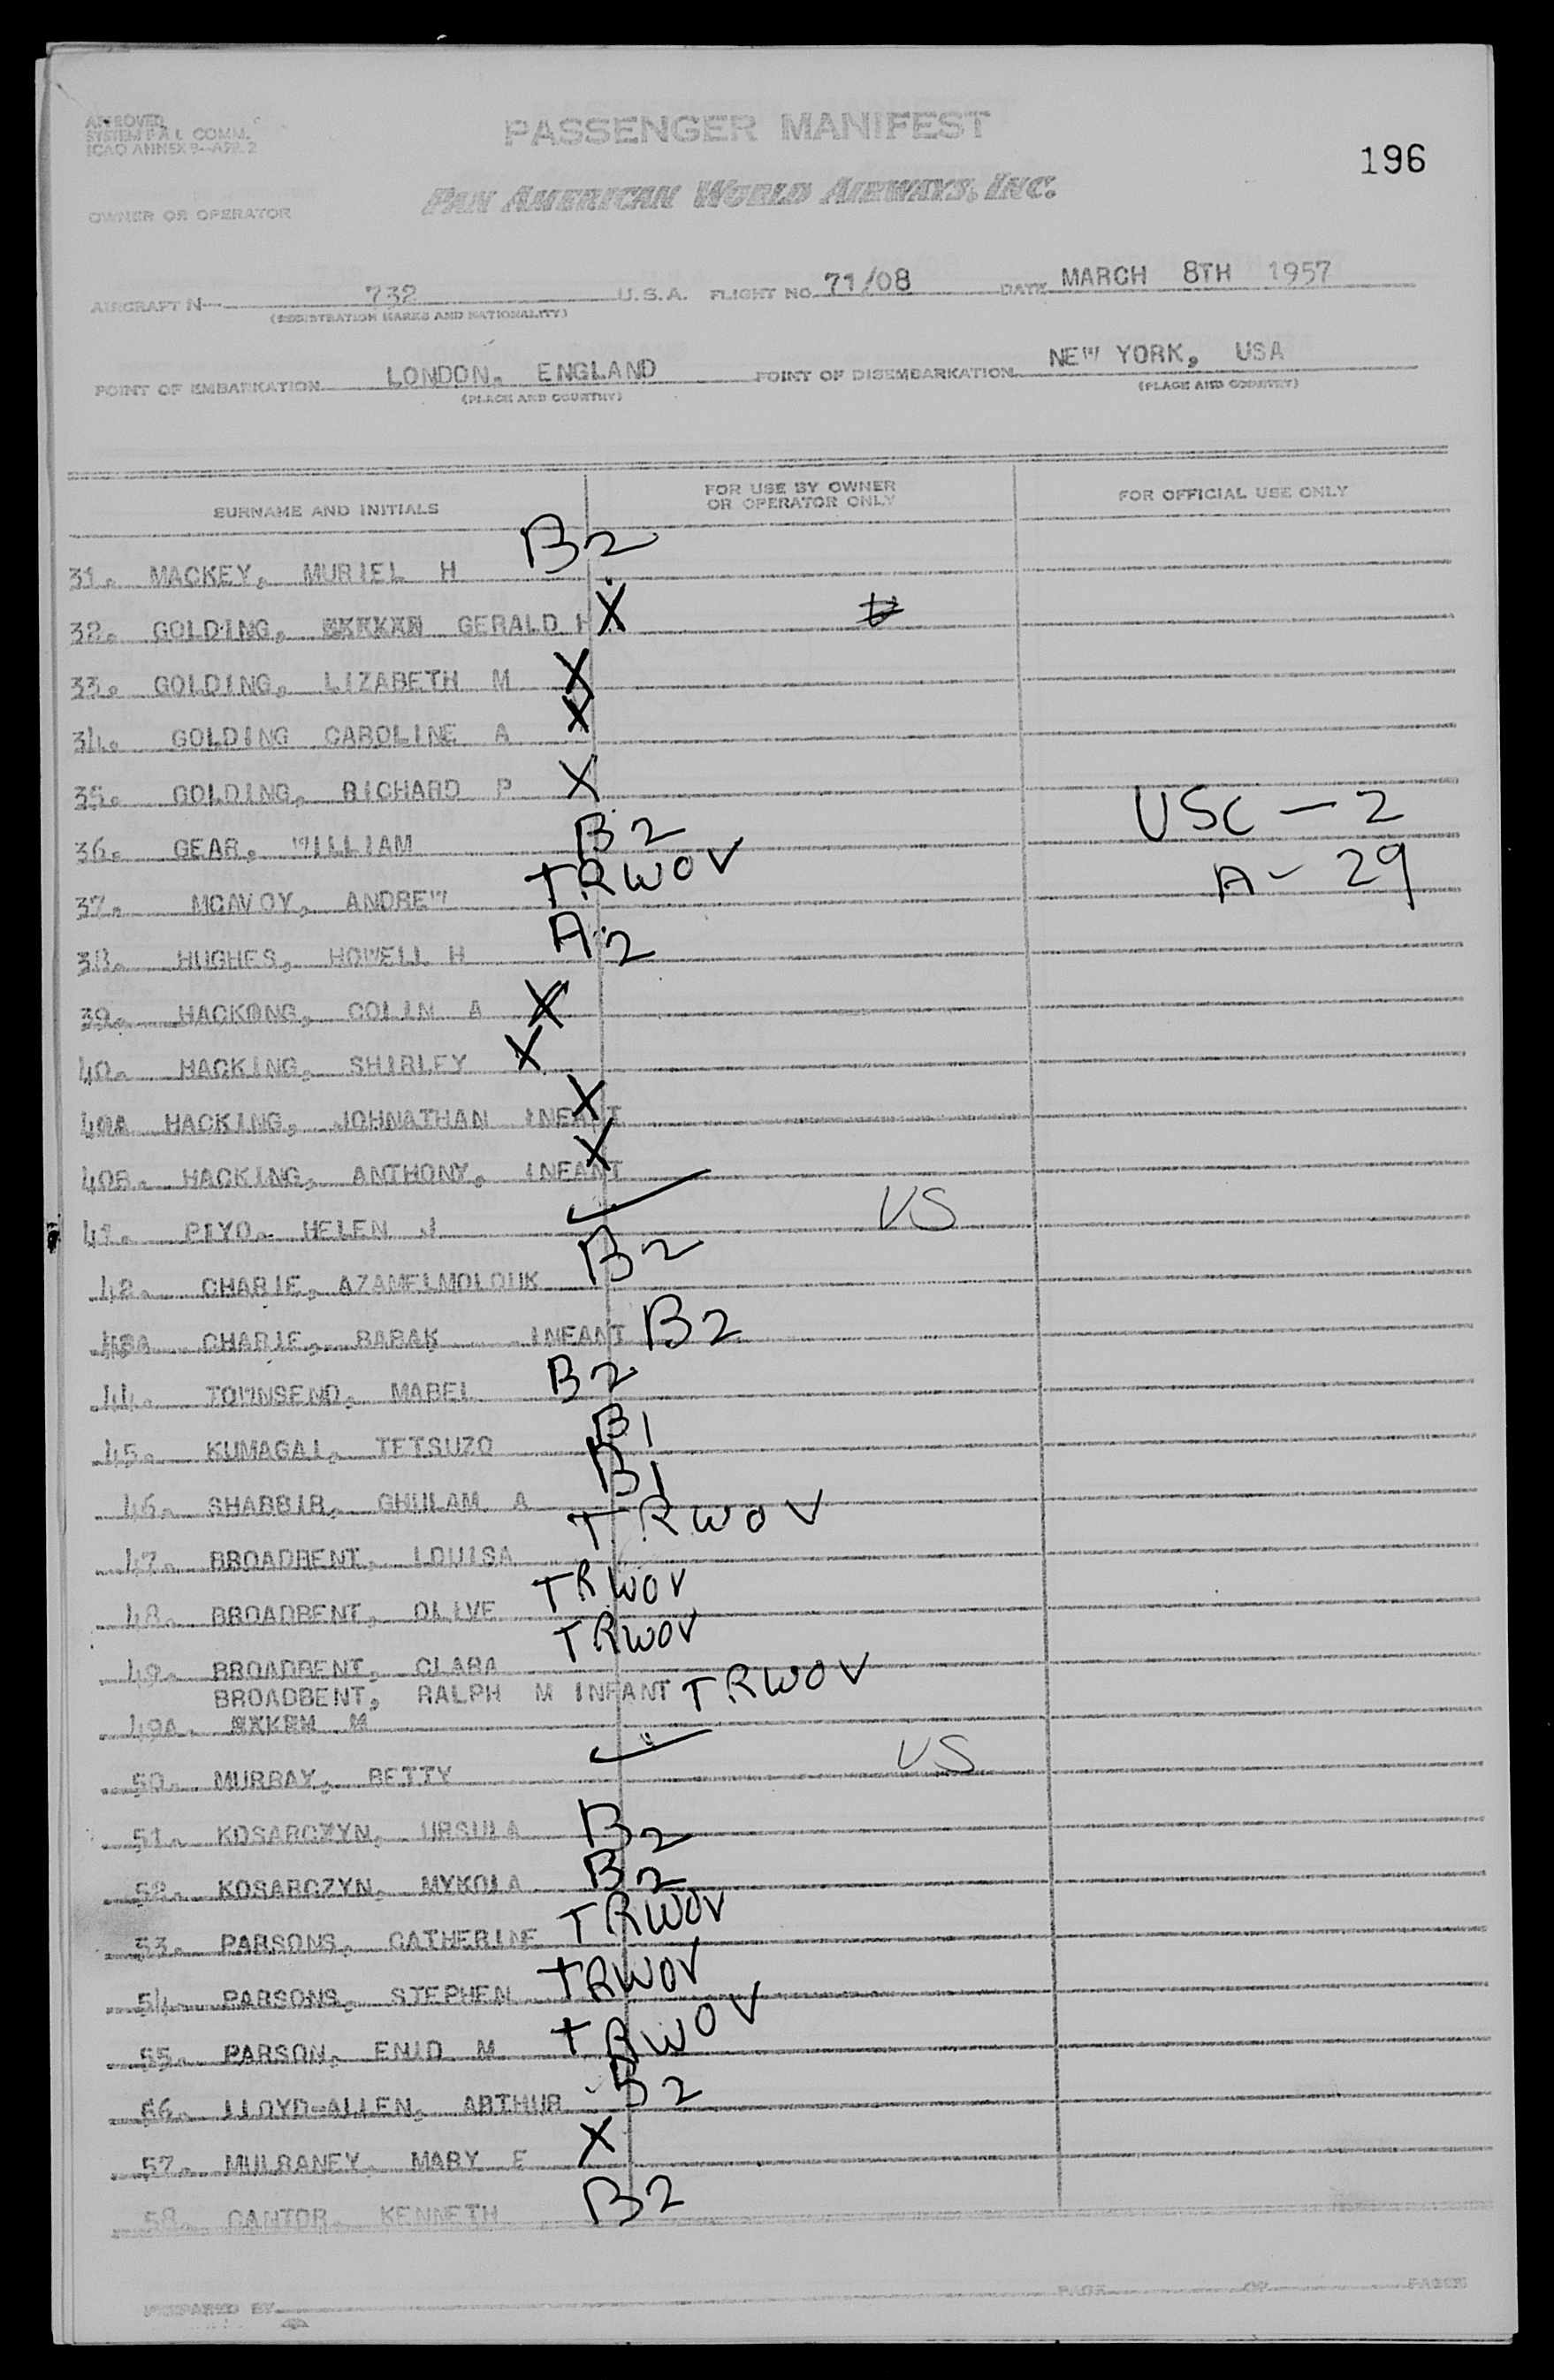 APPROVED
SYSTEM P.A.L COMM.
ICAO ANNEX 9—APP. 2
PASSENGER MANIFEST
196
PAN AMERICAN WORLD AIRWAYS, INC.
OWNER OR OPERATOR
AIRCRAFT N 732 U.S.A. FLIGHT NO. 71/08 DATE MARCH 8TH 1957
(REGISTRATION MARKS AND NATIONALITY)
POINT OF EMBARKATION LONDON, ENGLAND POINT OF DISEMBARKATION NEW YORK, USA
(PLACE AND COUNTRY) (PLACE AND COUNTRY)
SURNAME AND INITIALS FOR USE BY OWNER OR OPERATOR ONLY FOR OFFICIAL USE ONLY
31. MACKEY, MURIEL H B2
32. GOLDING, GERALD H X
33. GOLDING, LIZABETH M X
34. GOLDING CAROLINE A X
35. GOLDING, RICHARD P X
36. GEAR, WILLIAM B2 USC - 2
37. MCAVOY, ANDREW TRWOV A - 29
38. HUGHES, HOWELL H A2
39. HACKONG, COLIN A X
40. HACKING, SHIRLEY X
40A HACKING, JOHNATHAN INFANT X
40B. HACKING, ANTHONY, INFANT X
41. PIYO. HELEN J ✓ US
42. CHARIE, AZAMELMOLOUK B2
43A CHARIE, BABAK INFANT B2
44. TOWNSEND, MABEL B2
45. KUMAGAI, TETSUZO B1
46. SHABBIR, GHULAM A B1
47. BROADBENT, LOUISA TRWOV
48. BROADBENT, OLIVE TRWOV
49. BROADBENT, CLARA TRWOV
BROADBENT, RALPH M INFANT TRWOV
49A.
50. MURRAY, BETTY ✓ US
51. KOSARCZYN, URSULA B2
52. KOSARCZYN, MYKOLA B2
53. PARSONS, CATHERINE TRWOV
54. PARSONS, STEPHEN TRWOV
55. PARSON, ENID M TRWOV
56. LLOYD-ALLEN, ARTHUR B2
57. MULRANEY, MARY E X
58. CANTOR, KENNETH B2
PREPARED BY PAGE OF PAGES